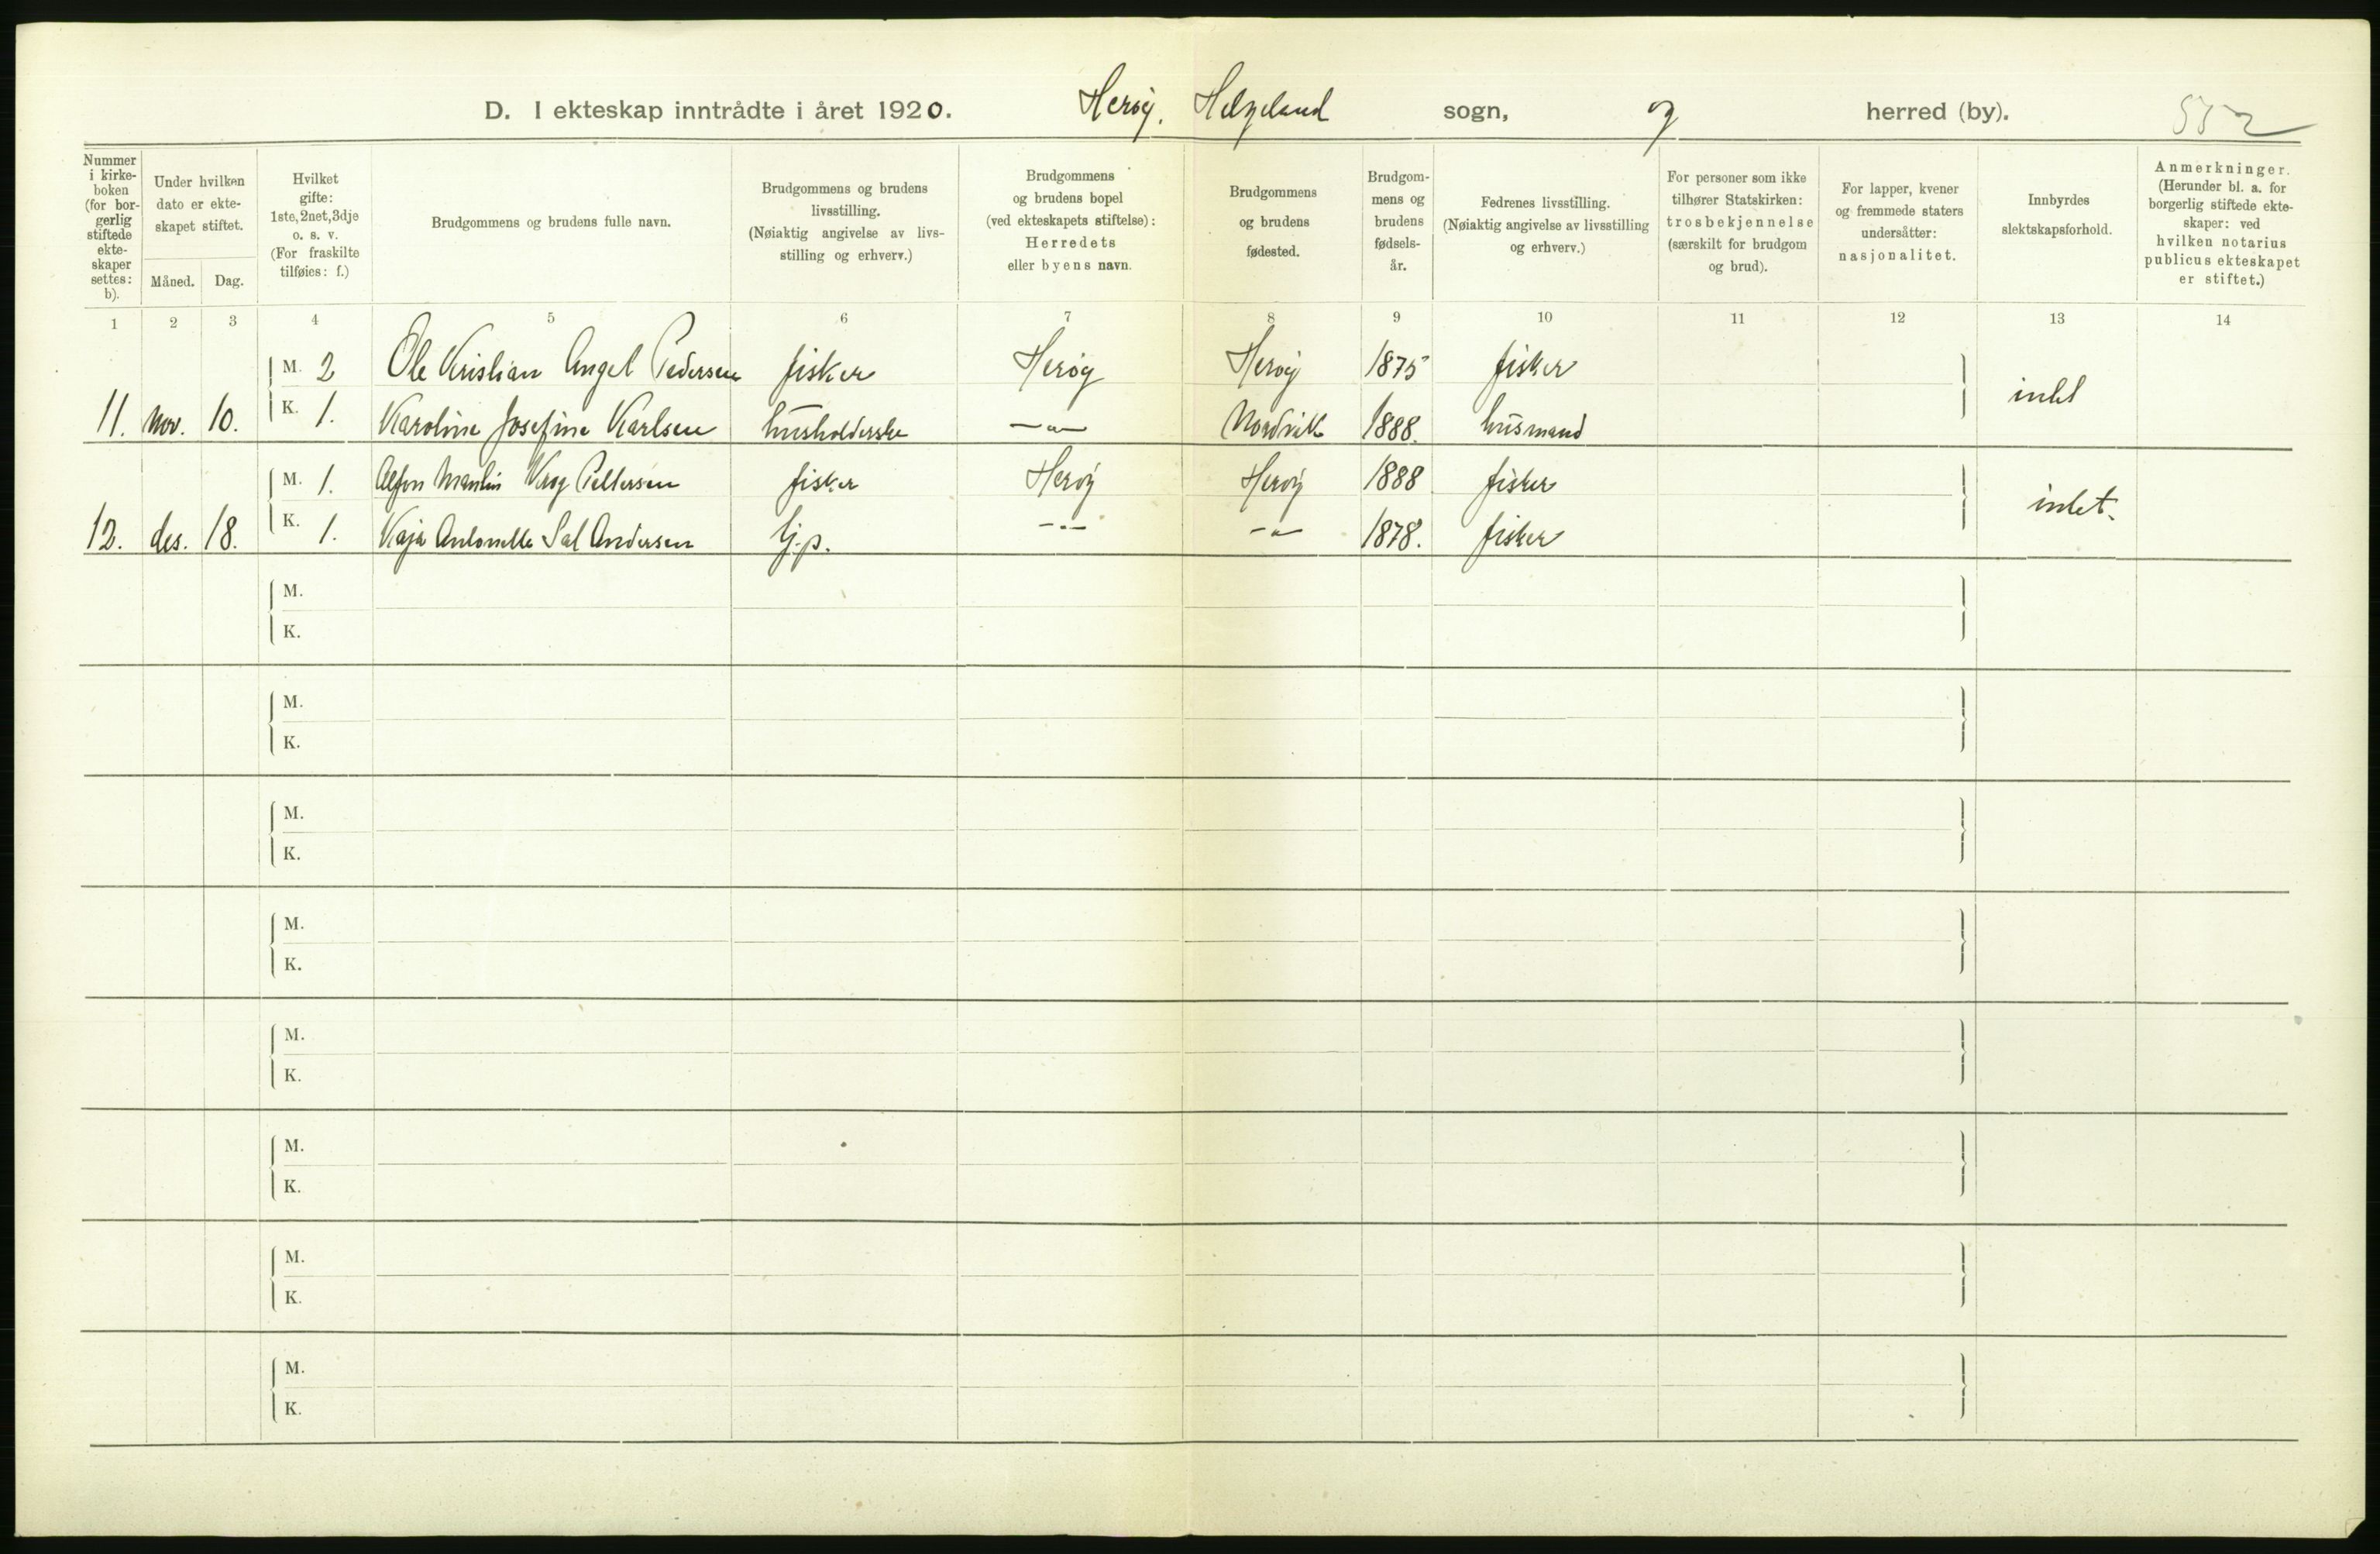 D. I ekteskap inntrådte i året 1920. Herøy. Helgeland sogn, og herred (by). 552
Nummer i kirkeboken (for borgerlig stiftede ekteskaper settes: b).
Under hvilken dato er ekteskapet stiftet.
Måned. Dag.
Hvilket gifte: 1ste, 2net, 3dje o. s. v. (For fraskilte tilføies: f.)
Brudgommens og brudens fulle navn.
Brudgommens og brudens livsstilling. (Nøiaktig angivelse av livsstilling og erhverv.)
Brudgommens og brudens bopel (ved ekteskapets stiftelse): Herredets eller byens navn.
Brudgommens og brudens fødested.
Brudgommens og brudens fødselsår.
Fedrenes livsstilling. (Nøiaktig angivelse av livsstilling og erhverv.)
For personer som ikke tilhører Statskirken: trosbekjennelse (særskilt for brudgom og brud).
For lapper, kvener og fremmede staters undersåtter: nasjonalitet.
Innbyrdes slektskapsforhold.
Anmerkninger. (Herunder bl. a. for borgerlig stiftede ekteskaper: ved hvilken notarius publicus ekteskapet er stiftet.)
1 2 3 4 5 6 7 8 9 10 11 12 13 14
M. 2 Ole Kristian Angel Pedersen fisker Herøy Herøy 1875 fisker intet
11. nov. 10. K. 1. Karoline Josefine Karlsen husholderske —"— Nordvik 1888. husmand
M. 1. Alfon Martin Krog Pettersen fisker Herøy Herøy 1888 fisker intet.
12. des. 18. K. 1. Kaja Antonette Sal Andersen —"— —"— 1878. fisker
M.
K.
M.
K.
M.
K.
M.
K.
M.
K.
M.
K.
M.
K.
M.
K.